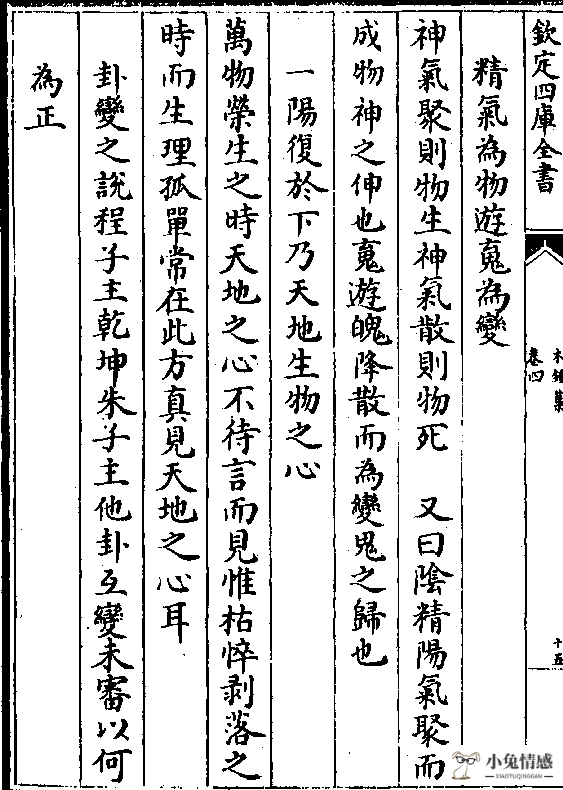 欽定四庫全書
木鍾集
卷四
十五
精氣為物遊䰟為變
神氣聚則物生神氣散則物死 又曰陰精陽氣聚而
成物神之伸也䰟遊魄降散而為變鬼之歸也
一陽復於下乃天地生物之心
萬物榮生之時天地之心不待言而見惟枯悴剥落之
時而生理孤單常在此方真見天地之心耳
卦變之說程子主乾坤朱子主他卦互變未審以何
為正
小兔情感
XIAOTUQINGGAN